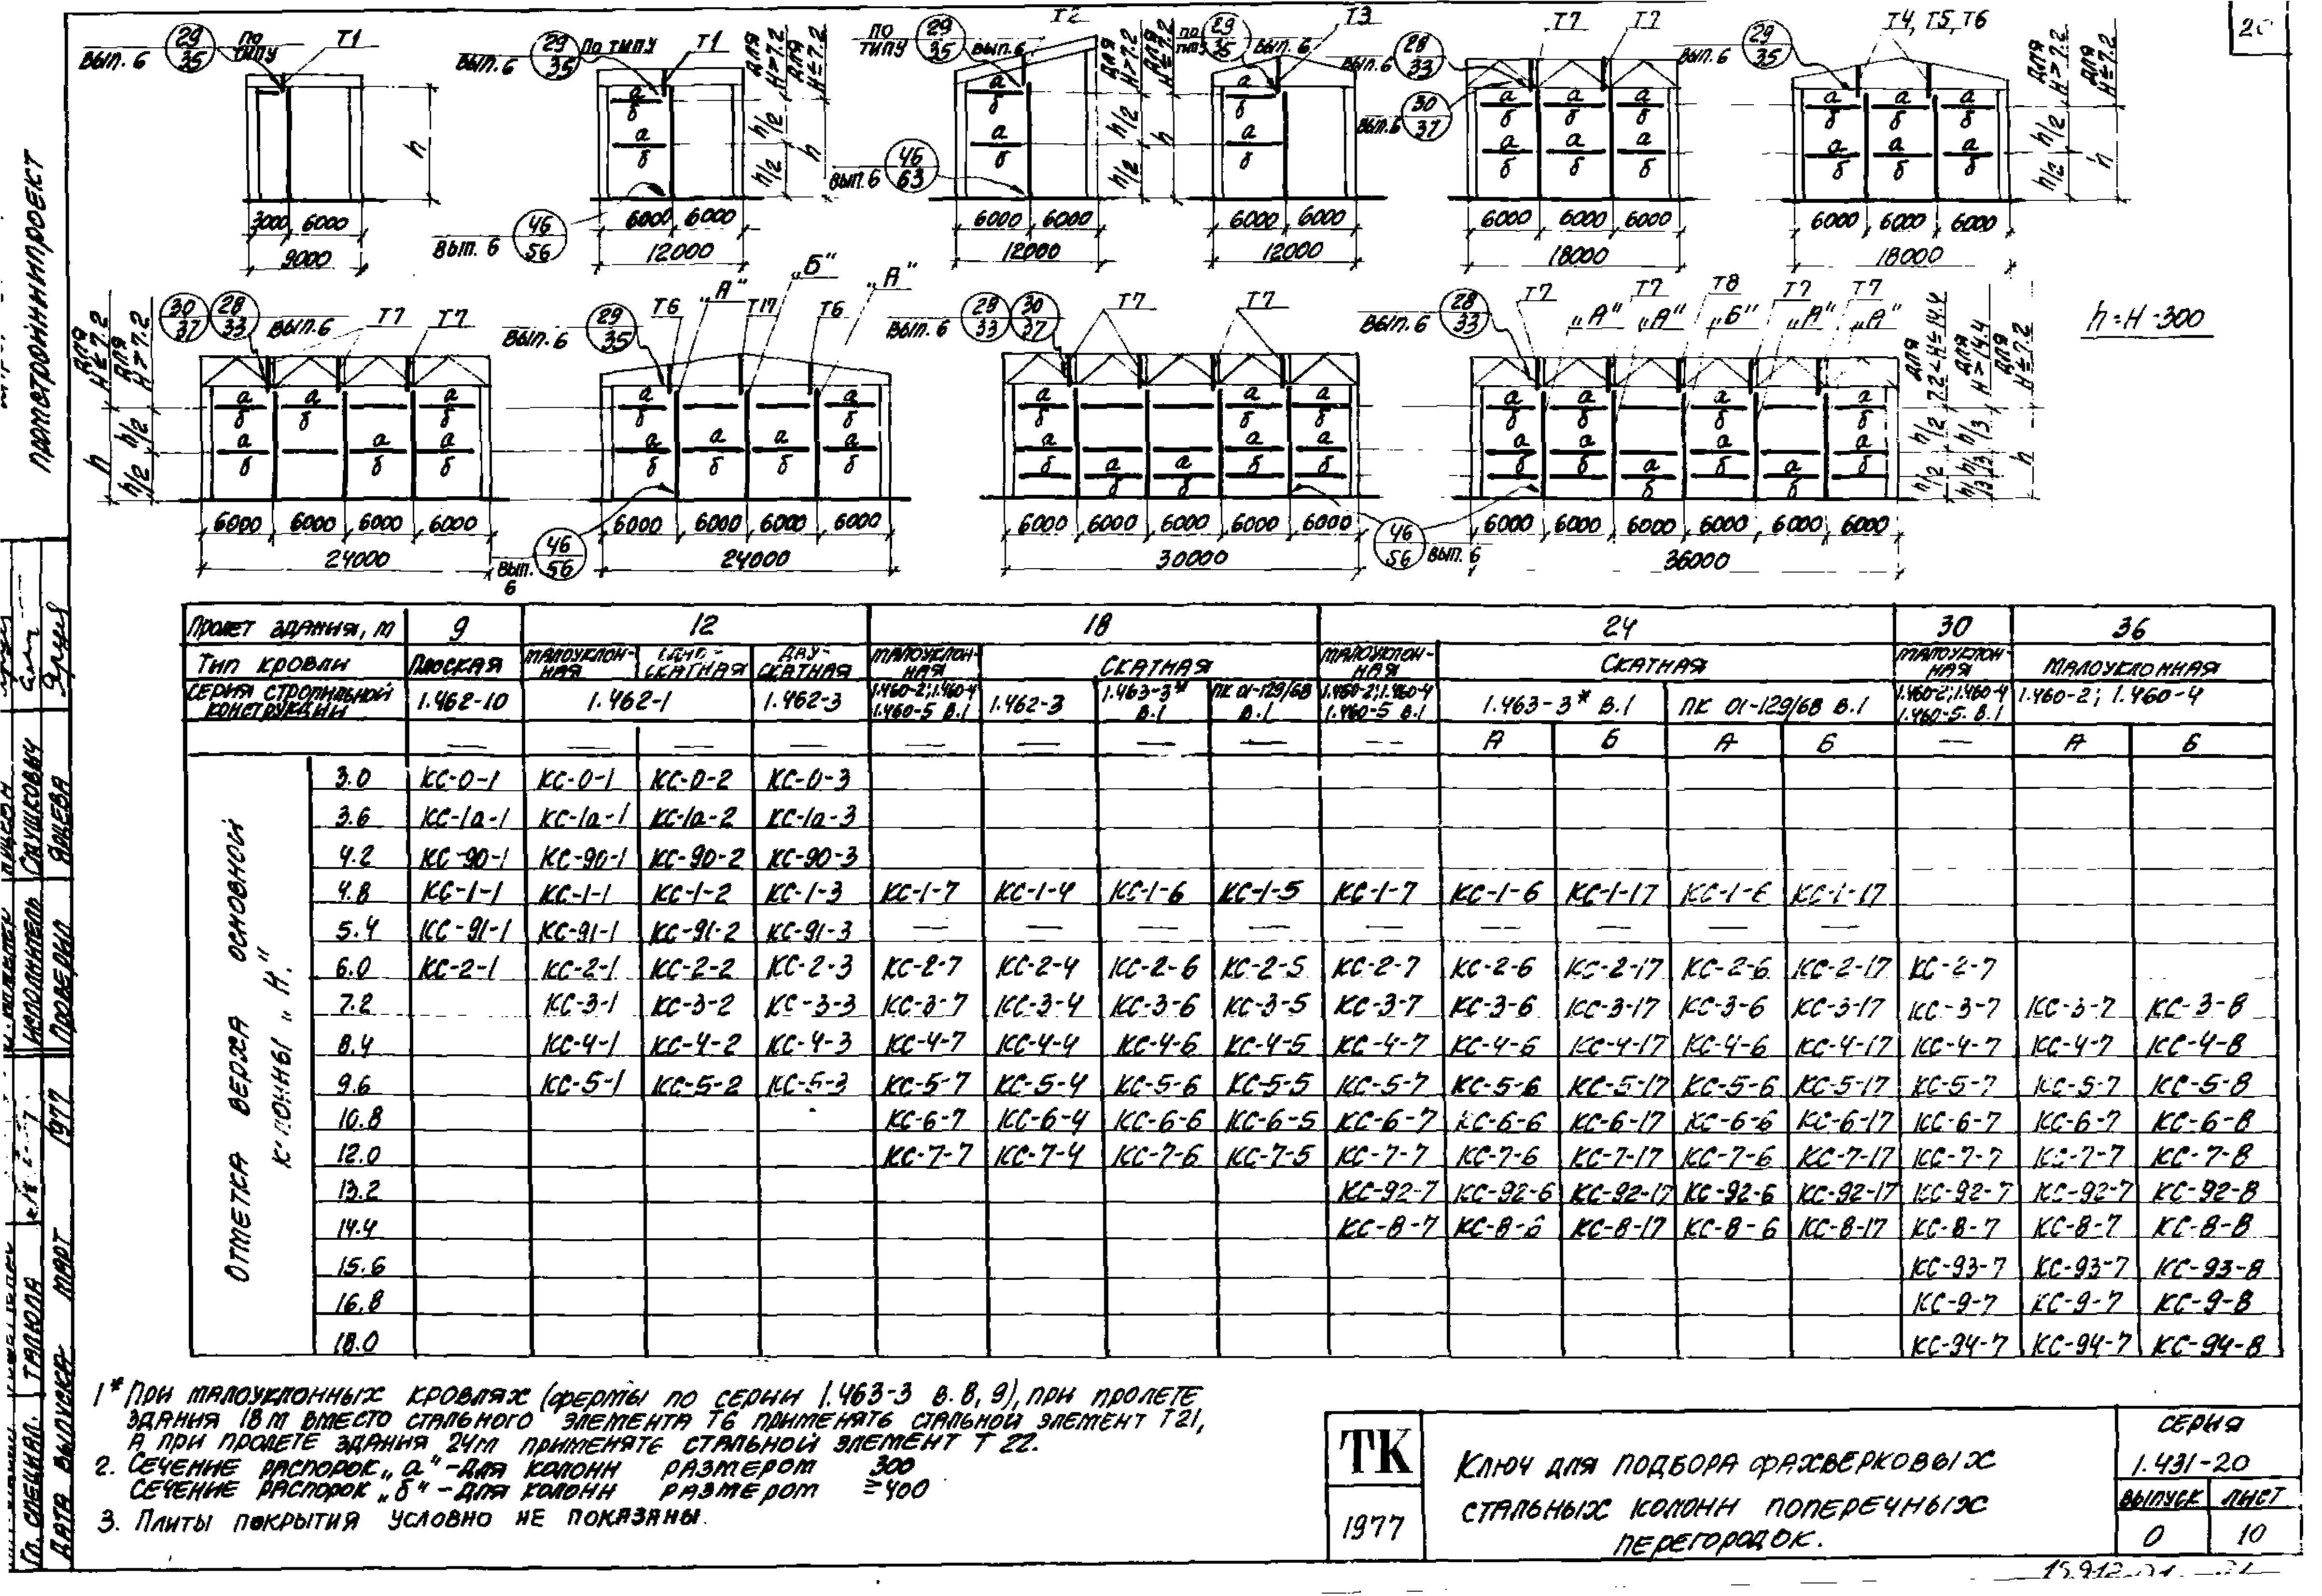 По типу Т1
Вып. 6 29/35
h
3000 6000
9000
Вып. 6 29/35 По типу Т1
Для Н>7.2
Для Н≤7.2
а/б
а/б
h/2 h/2 h
6000 6000
12000
Вып. 6 46/56
По типу 29/35 Вып. 6 Т2
Для Н>7.2
Для Н≤7.2
а/б
а/б
h/2 h/2 h
Вып. 6 46/63
6000 6000
12000
По типу 29/35 Вып. 6 Т3
а/б
а/б
6000 6000
12000
Вып. 6 28/33 Т7 Т7
Вып. 6 30/37
а/б а/б а/б
а/б а/б а/б
6000 6000 6000
18000
Вып. 6 29/35 Т4, Т5, Т6
Для Н>7.2
Для Н≤7.2
а/б а/б а/б
а/б а/б а/б
h/2 h/2 h
6000 6000 6000
18000
Для Н≤7.2
Для Н>7.2
h h/2 h/2
30/37 28/33 Вып. 6 Т7 Т7
а/б а/б а/б
а/б а/б а/б
6000 6000 6000 6000
24000
Вып. 6 29/35 Т6 „А" Т17 „Б" Т6 „А"
а/б а/б
а/б а/б а/б а/б
6000 6000 6000 6000
24000
Вып. 6 46/56
Вып. 6 28/33 30/37 Т7 Т7
а/б а/б а/б
а/б а/б а/б
а/б а/б
6000 6000 6000 6000 6000
30000
46/56 Вып. 6
Вып. 6 28/33 Т7 Т7 Т8 Т7 Т7
„А" „А" „Б" „А" „А"
Для 7.2<Н≤14.4
Для Н>14.4
Для Н≤7.2
а/б а/б а/б
а/б а/б а/б а/б
а/б а/б
h/2 h/2 h/3 h/3 h/3 h
6000 6000 6000 6000 6000 6000
36000
h=Н-300
Прометройниипроект
Пролет здания, м 9 12 18 24 30 36
Тип кровли Плоская Малоуклонная Односкатная Двускатная Малоуклонная Скатная Малоуклонная Скатная Малоуклонная Малоуклонная
Серия стропильной конструкции 1.462-10 1.462-1 1.462-3 1.460-2; 1.460-4 1.460-5 в.1 1.462-3 1.463-3* в.1 ПК 01-129/68 в.1 1.460-2; 1.460-4 1.460-5 в.1 1.463-3* в.1 ПК 01-129/68 в.1 1.460-2; 1.460-4 1.460-5. в.1 1.460-2; 1.460-4
— — — — — — — — — А Б А Б — А Б
Отметка верха основной колонны „Н."
3.0 КС-0-1 КС-0-1 КС-0-2 КС-0-3
3.6 КС-1а-1 КС-1а-1 КС-1а-2 КС-1а-3
4.2 КС-90-1 КС-90-1 КС-90-2 КС-90-3
4.8 КС-1-1 КС-1-1 КС-1-2 КС-1-3 КС-1-7 КС-1-4 КС-1-6 КС-1-5 КС-1-7 КС-1-6 КС-1-17 КС-1-6 КС-1-17
5.4 КС-91-1 КС-91-1 КС-91-2 КС-91-3 — — — — — — — — —
6.0 КС-2-1 КС-2-1 КС-2-2 КС-2-3 КС-2-7 КС-2-4 КС-2-6 КС-2-5 КС-2-7 КС-2-6 КС-2-17 КС-2-6 КС-2-17 КС-2-7
7.2 КС-3-1 КС-3-2 КС-3-3 КС-3-7 КС-3-4 КС-3-6 КС-3-5 КС-3-7 КС-3-6 КС-3-17 КС-3-6 КС-3-17 КС-3-7 КС-3-7 КС-3-8
8.4 КС-4-1 КС-4-2 КС-4-3 КС-4-7 КС-4-4 КС-4-6 КС-4-5 КС-4-7 КС-4-6 КС-4-17 КС-4-6 КС-4-17 КС-4-7 КС-4-7 КС-4-8
9.6 КС-5-1 КС-5-2 КС-5-3 КС-5-7 КС-5-4 КС-5-6 КС-5-5 КС-5-7 КС-5-6 КС-5-17 КС-5-6 КС-5-17 КС-5-7 КС-5-7 КС-5-8
10.8 КС-6-7 КС-6-4 КС-6-6 КС-6-5 КС-6-7 КС-6-6 КС-6-17 КС-6-6 КС-6-17 КС-6-7 КС-6-7 КС-6-8
12.0 КС-7-7 КС-7-4 КС-7-6 КС-7-5 КС-7-7 КС-7-6 КС-7-17 КС-7-6 КС-7-17 КС-7-7 КС-7-7 КС-7-8
13.2 КС-92-7 КС-92-6 КС-92-17 КС-92-6 КС-92-17 КС-92-7 КС-92-7 КС-92-8
14.4 КС-8-7 КС-8-6 КС-8-17 КС-8-6 КС-8-17 КС-8-7 КС-8-7 КС-8-8
15.6 КС-93-7 КС-93-7 КС-93-8
16.8 КС-9-7 КС-9-7 КС-9-8
18.0 КС-94-7 КС-94-7 КС-94-8
1* При малоуклонных кровлях (фермы по серии 1.463-3 в. 8, 9), при пролете
здания 18 м вместо стального элемента Т6 применять стальной элемент Т21,
а при пролете здания 24м применять стальной элемент Т 22.
2. Сечение распорок „а"-для колонн размером 300
Сечение распорок „б"-для колонн размером ≥400
3. Плиты покрытия условно не показаны.
ТК
1977
Ключ для подбора фахверковых
стальных колонн поперечных
перегородок.
Серия
1.431-20
Выпуск Лист
0 10
Гл. специал. Талюла
Дата выпуска март 1977
Исполнитель Глушкова
Проверил Яцева